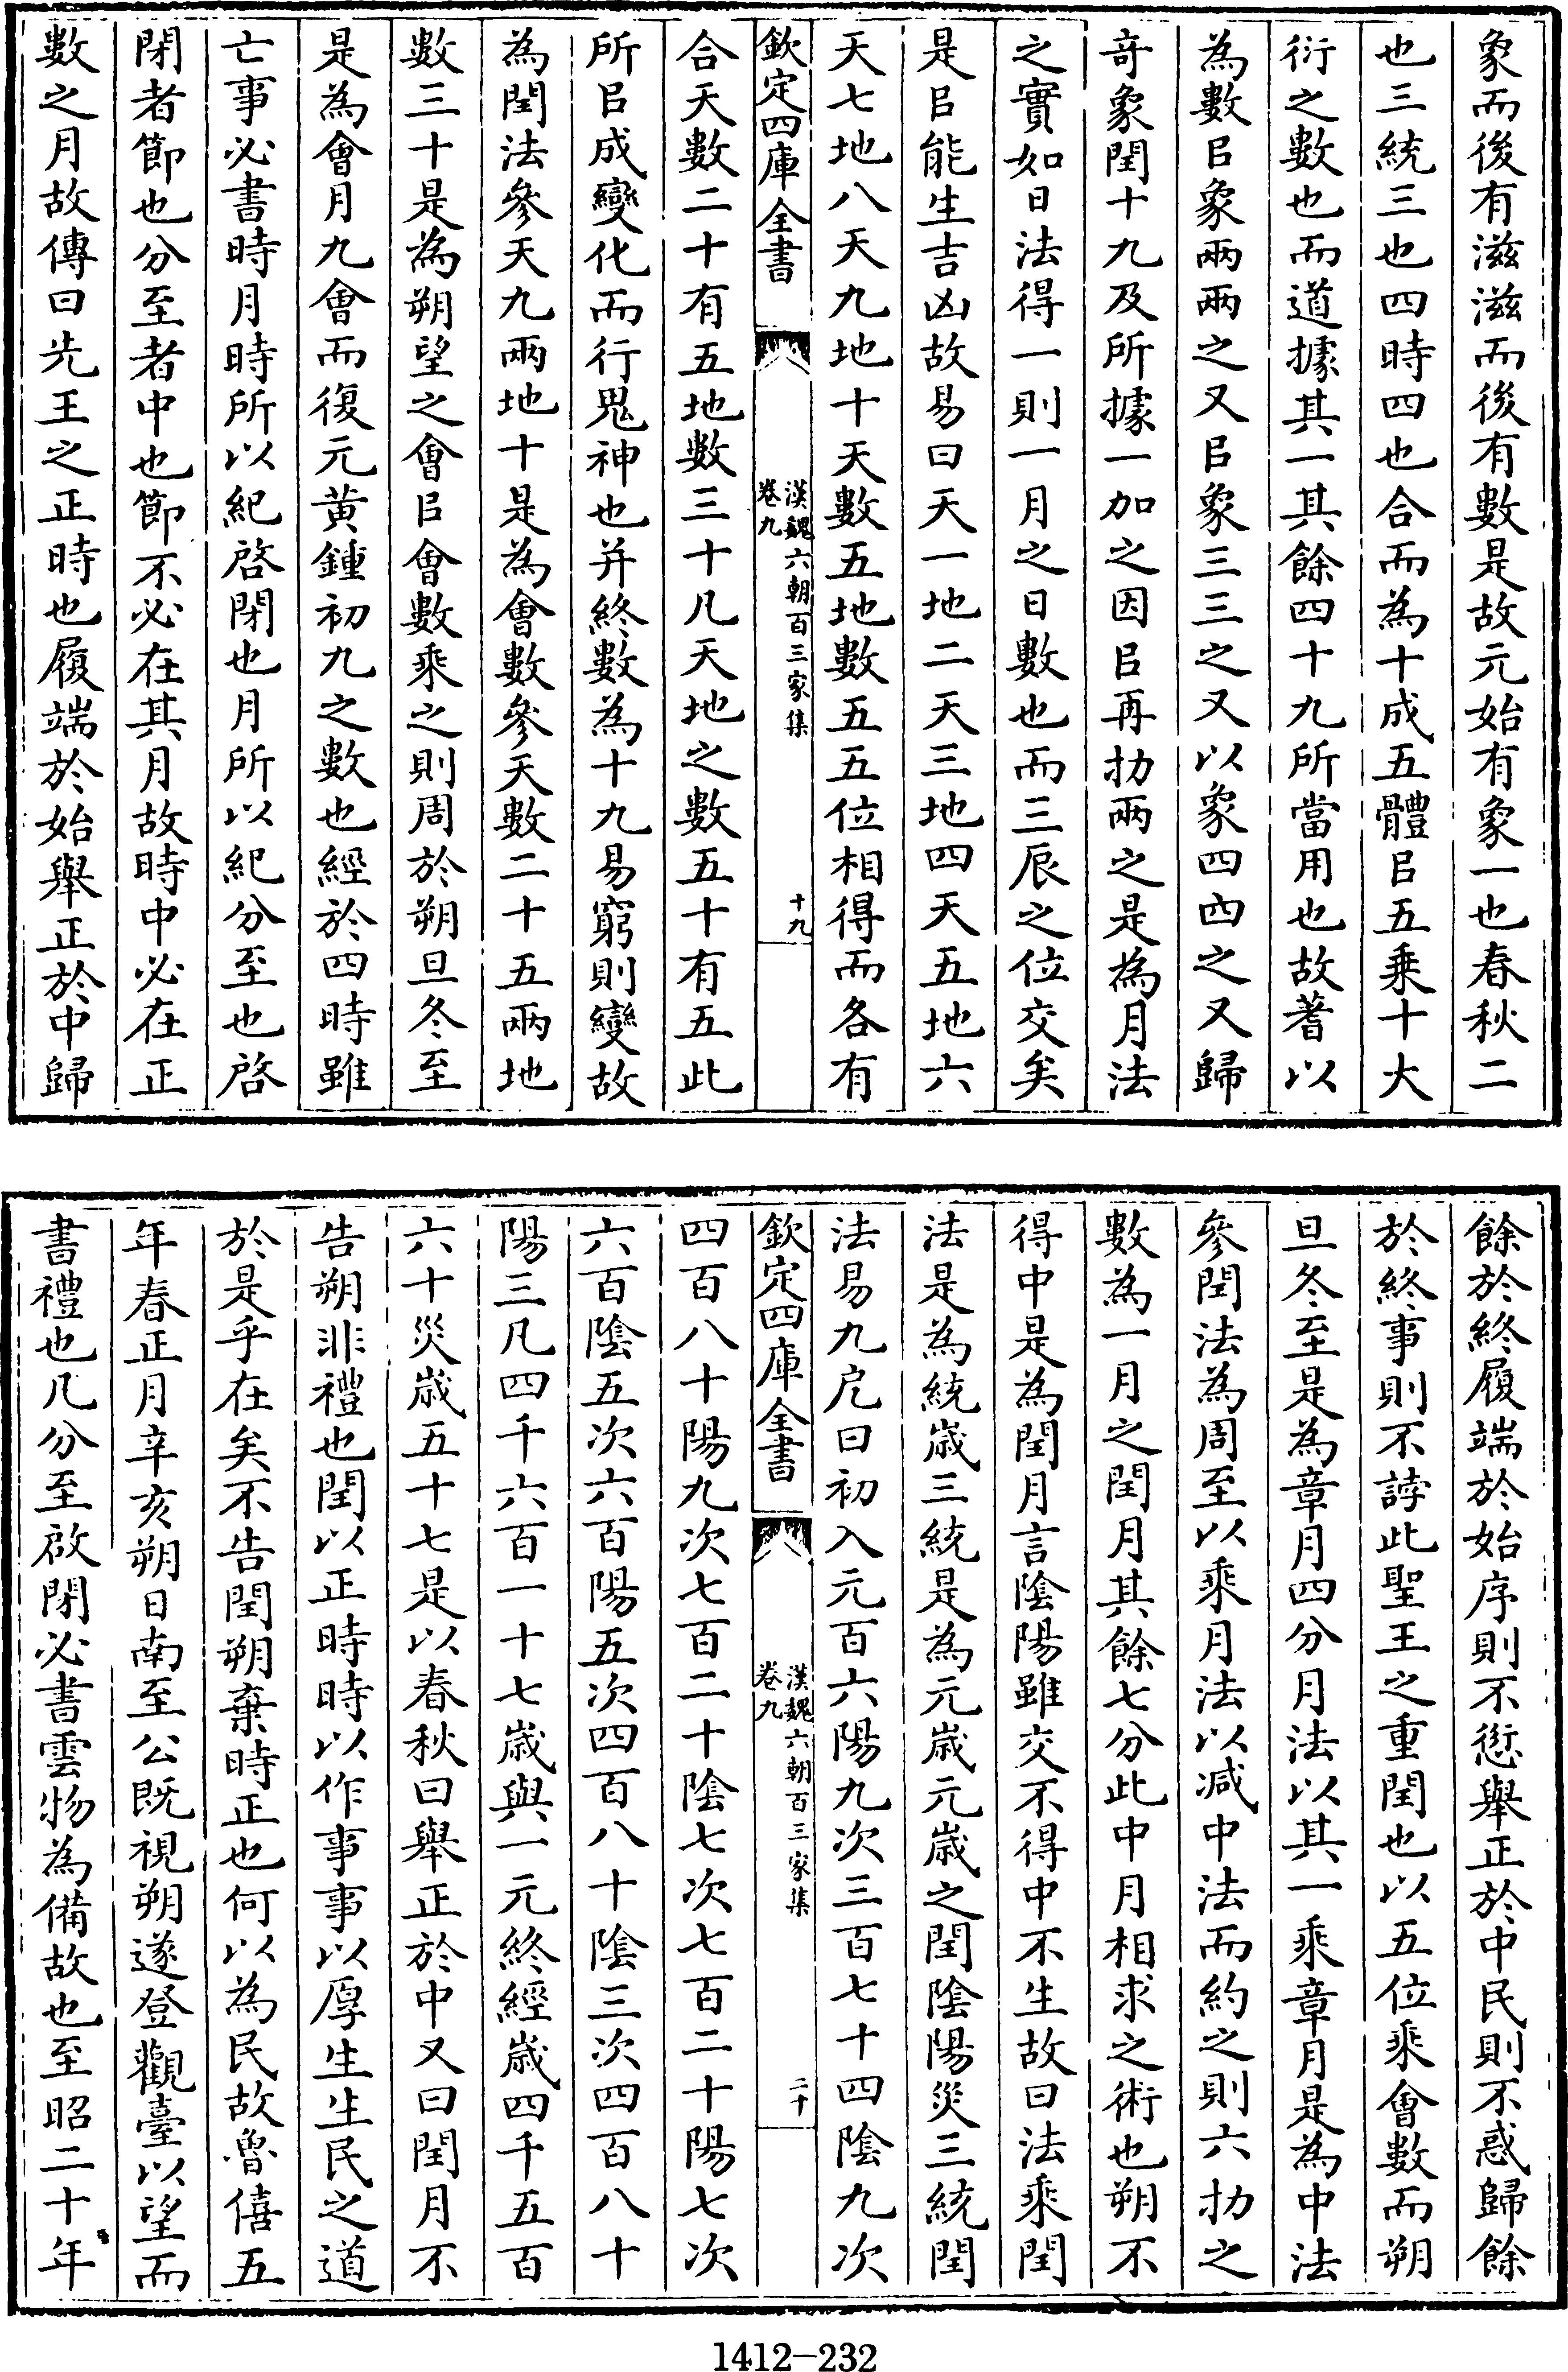 象而後有滋滋而後有數是故元始有象一也春秋二
也三統三也四時四也合而為十成五體㠯五乘十大
衍之數也而道據其一其餘四十九所當用也故蓍以
為數㠯象兩兩之又㠯象三三之又以象四四之又歸
奇象閏十九及所據一加之因㠯再扐兩之是為月法
之實如日法得一則一月之日數也而三辰之位交矣
是㠯能生吉凶故易曰天一地二天三地四天五地六
天七地八天九地十天數五地數五五位相得而各有
欽定四庫全書
漢魏六朝百三家集
卷九
十九
合天數二十有五地數三十凡天地之數五十有五此
所㠯成變化而行鬼神也并終數為十九易窮則變故
為閏法參天九兩地十是為會數參天數二十五兩地
數三十是為朔望之會㠯會數乘之則周於朔旦冬至
是為會月九會而復元黃鍾初九之數也經於四時雖
亡事必書時月時所以紀啓閉也月所以紀分至也啓
閉者節也分至者中也節不必在其月故時中必在正
數之月故傳曰先王之正時也履端於始舉正於中歸
餘於終履端於始序則不愆舉正於中民則不惑歸餘
於終事則不誖此聖王之重閏也以五位乘會數而朔
旦冬至是為章月四分月法以其一乘章月是為中法
參閏法為周至以乘月法以減中法而約之則六扐之
數為一月之閏月其餘七分此中月相求之術也朔不
得中是為閏月言陰陽雖交不得中不生故曰法乘閏
法是為統歲三統是為元歲元歲之閏陰陽災三統閏
法易九戹曰初入元百六陽九次三百七十四陰九次
欽定四庫全書
漢魏六朝百三家集
卷九
二十
四百八十陽九次七百二十陰七次七百二十陽七次
六百陰五次六百陽五次四百八十陰三次四百八十
陽三凡四千六百一十七歲與一元終經歲四千五百
六十災歲五十七是以春秋曰舉正於中又曰閏月不
告朔非禮也閏以正時時以作事事以厚生生民之道
於是乎在矣不告閏朔棄時正也何以為民故魯僖五
年春正月辛亥朔日南至公既視朔遂登觀臺以望而
書禮也凡分至啟閉必書雲物為備故也至昭二十年
1412-232